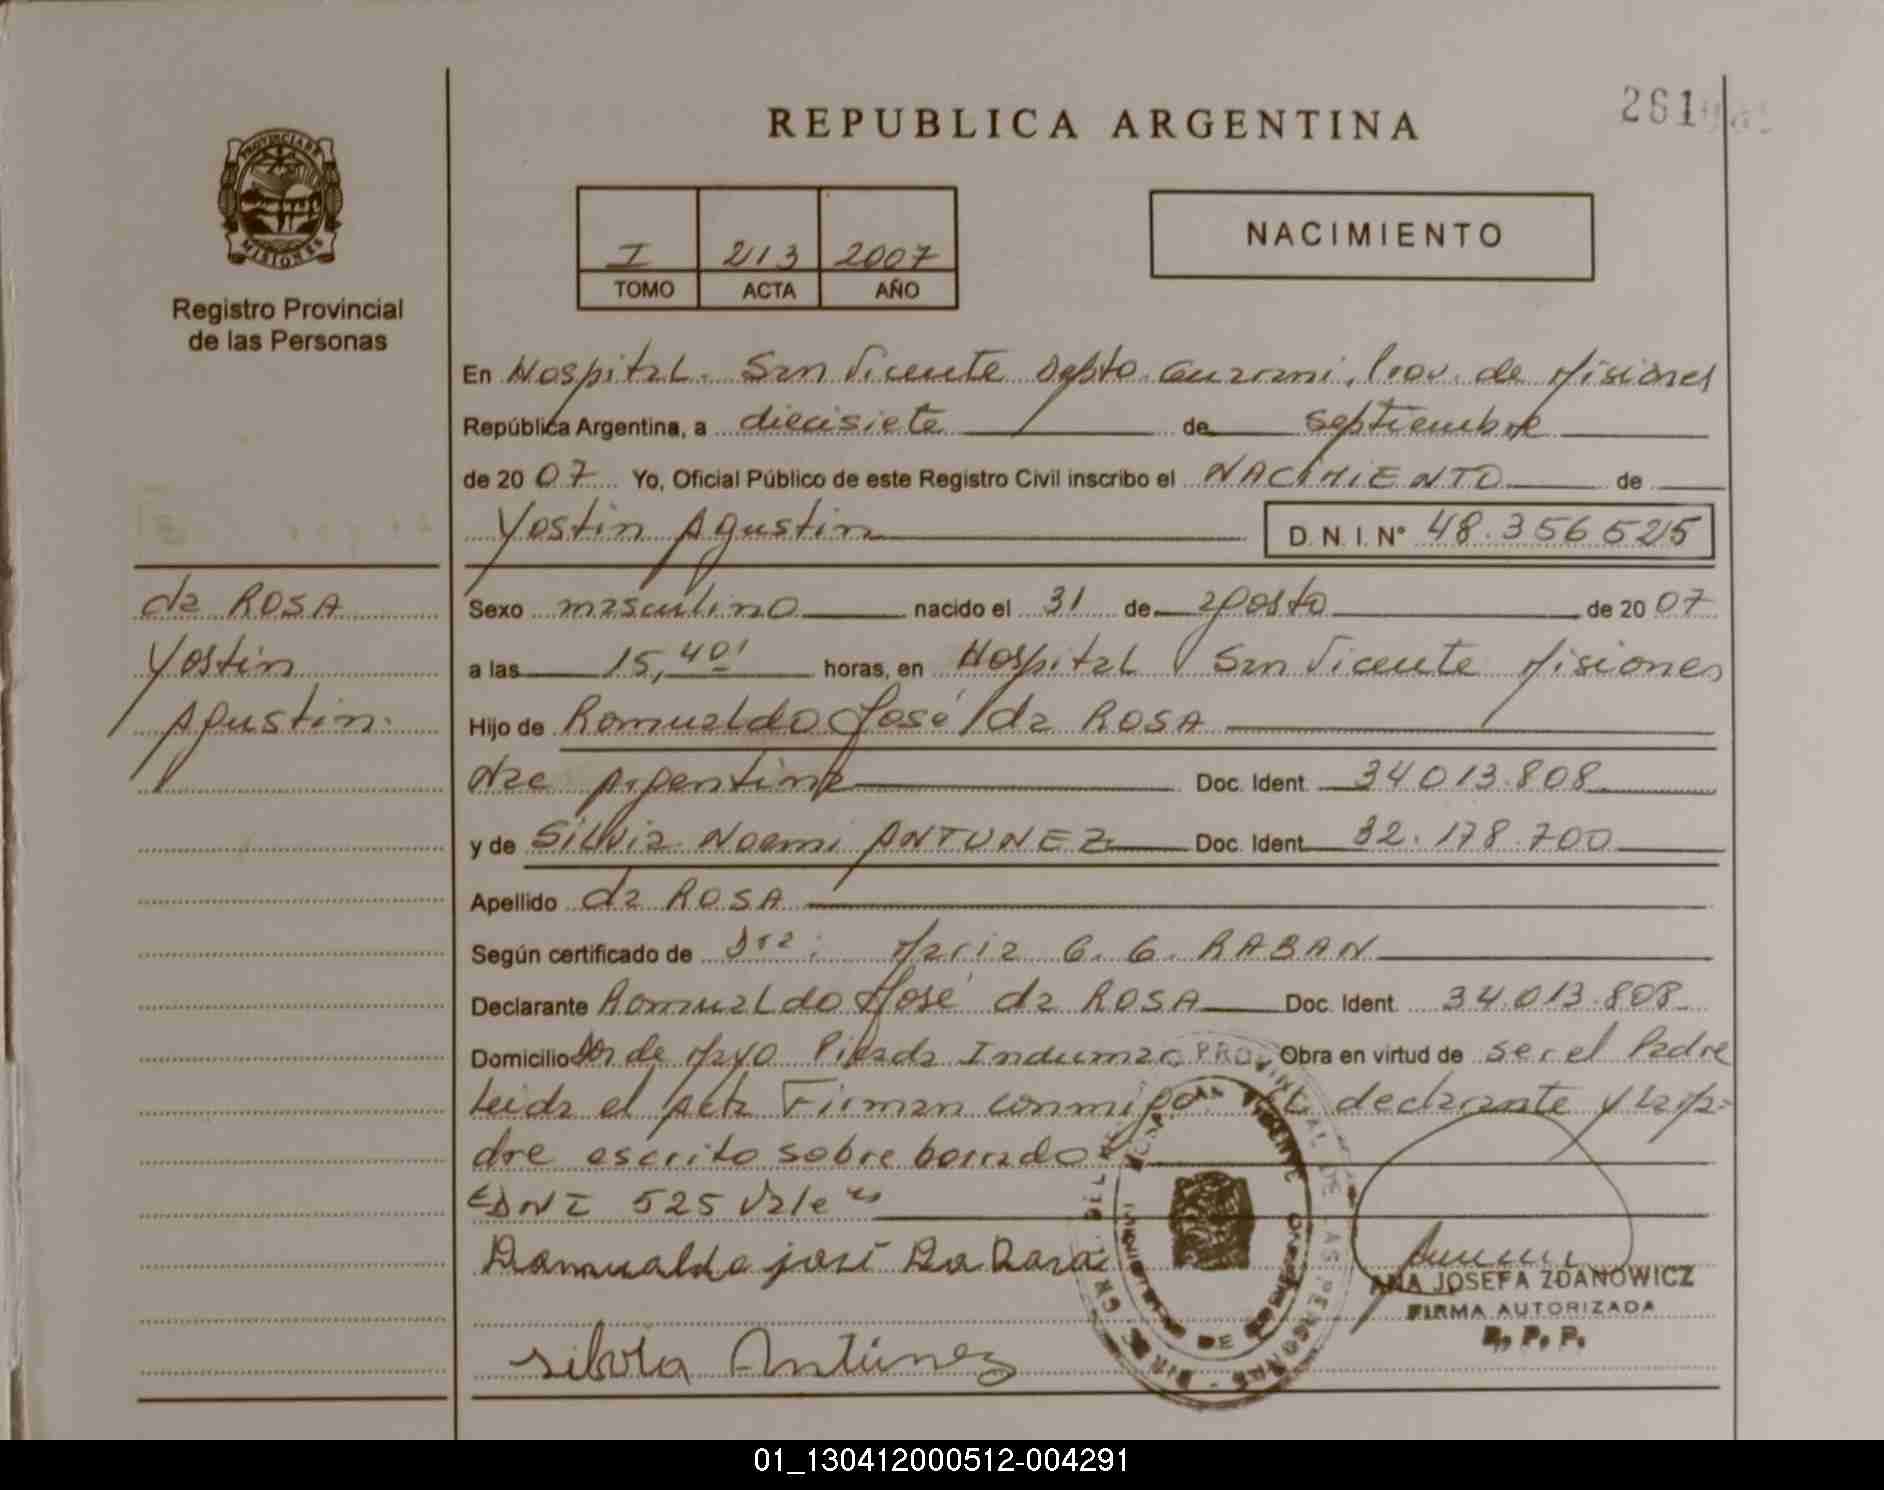 REPUBLICA ARGENTINA
261
PROVINCIA DE
MISIONES
Registro Provincial
de las Personas
I 213 2007
TOMO ACTA AÑO
NACIMIENTO
En Hospital San Vicente Depto. Guarani, Prov. de Misiones
República Argentina, a diecisiete de septiembre
de 2007 Yo, Oficial Público de este Registro Civil inscribo el NACIMIENTO de
Yostin Agustin D.N.I. N° 48.356525
da ROSA
Yostin
Agustin.
Sexo masculino nacido el 31 de agosto de 2007
a las 15,40' horas, en Hospital San Vicente Misiones
Hijo de Romualdo José da ROSA
Argentina Doc. Ident. 34013.808
y de Silvia Noemi ANTUNEZ Doc. Ident. 32.178.700
Apellido da ROSA
Según certificado de Dra: Maria G. G. RABAN
Declarante Romualdo José da ROSA Doc. Ident. 34.013.808
Domicilio de Mayo Picada Indumar Obra en virtud de ser el Padre
Leida el Acta Firman conmigo El declarante y la Ma-
dre escrito sobre borrado
DNI 525 Vale
Romualdo josé Da Rosa
Silvia Antúnez
ANA JOSEFA ZDANOWICZ
FIRMA AUTORIZADA
R. P. P.
01_130412000512-004291